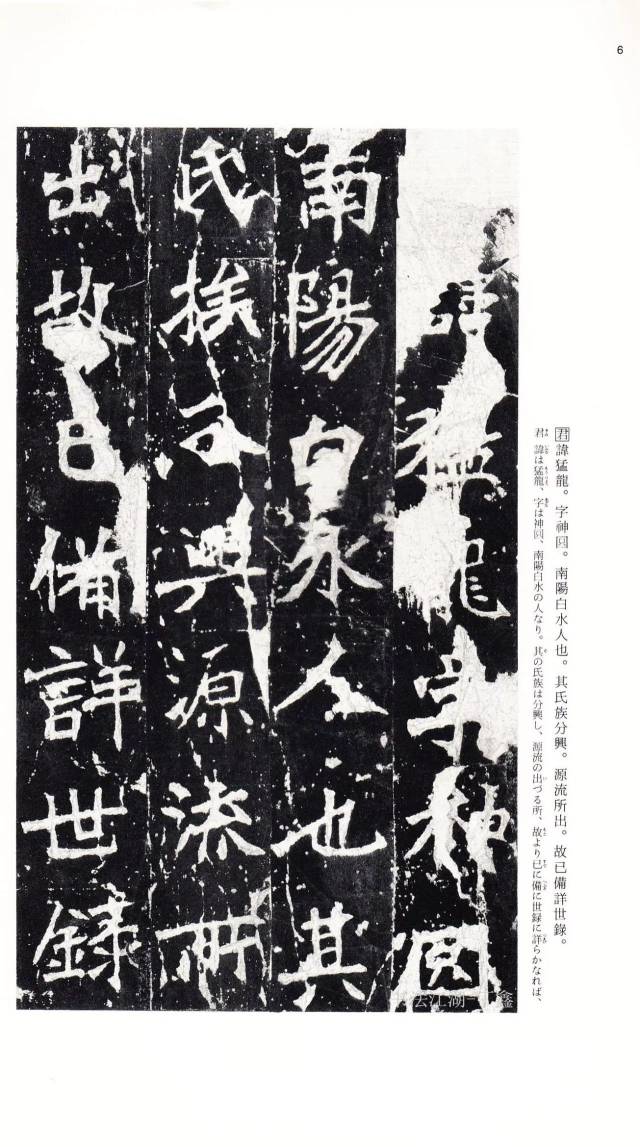 6
君諱猛龍。字神㘣。南陽白水人也。其氏族分興。源流所出。故已備詳世錄。
君諱は猛龍、字は神㘣、南陽白水の人なり。其の氏族は分興し、源流の出づる所、故より已に備に世録に詳らかなれば、
諱猛龍字神㘣
南陽白水人也其
氏族分興源流所
出故已備詳世錄
去江湖一鑫